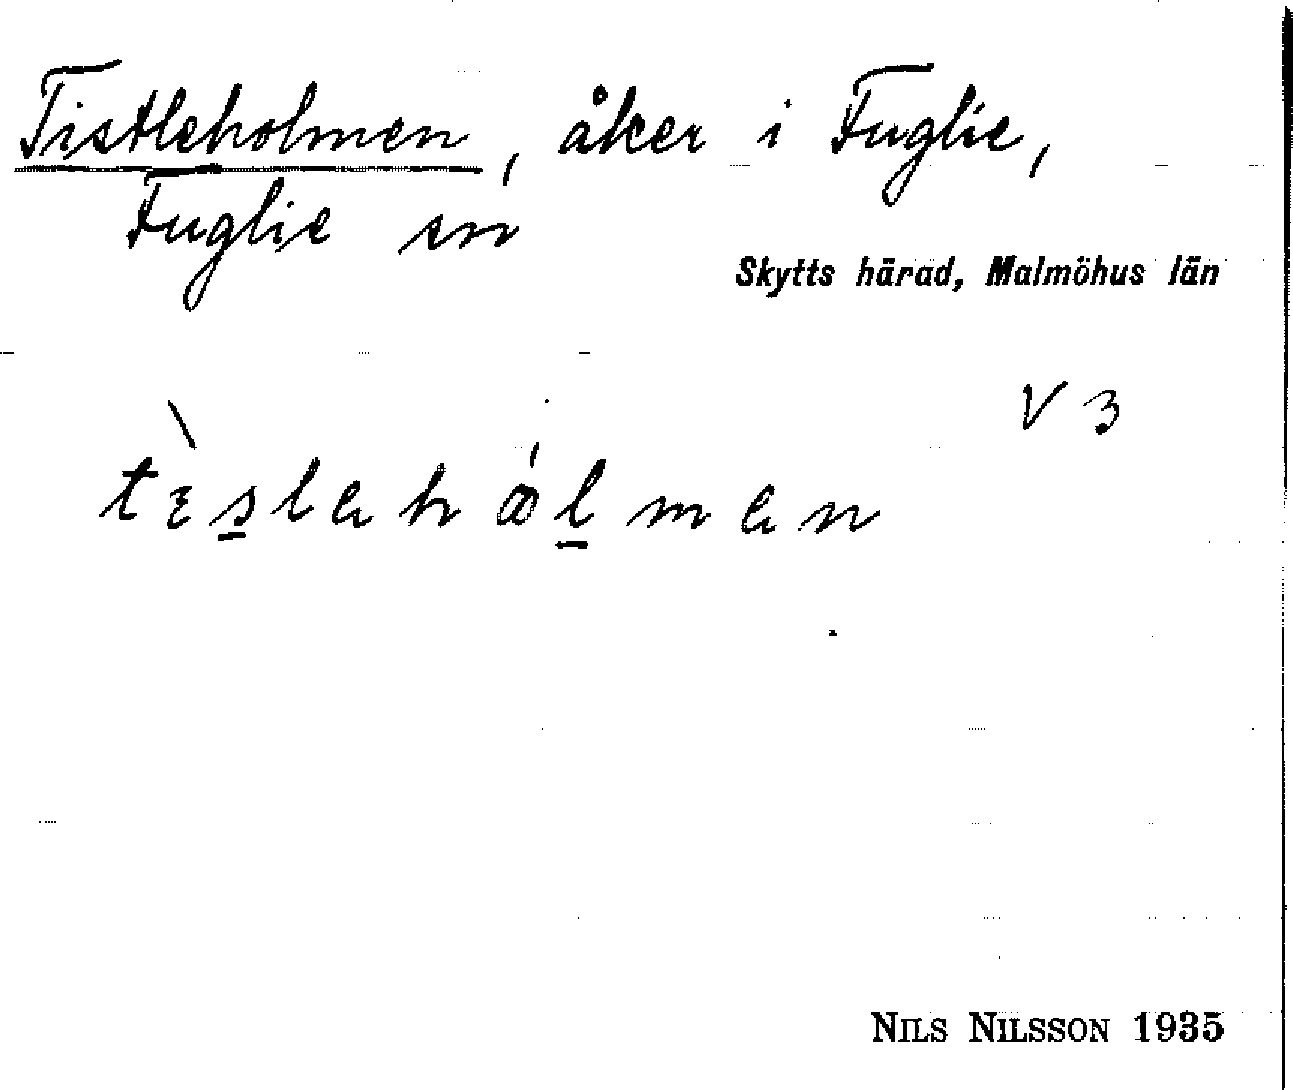 Tistleholmen, åker i Fuglie,
Fuglie sn
Skytts härad, Malmöhus län
V 3
NILS NILSSON 1935